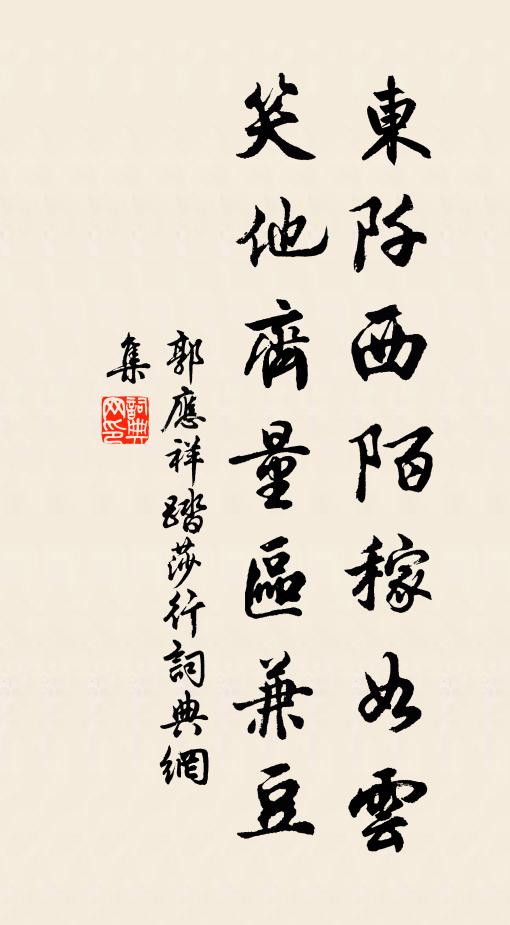 東阡西陌稼如雲
笑他齊量區兼豆
郭應祥踏莎行詞典網
集
詞典
网印